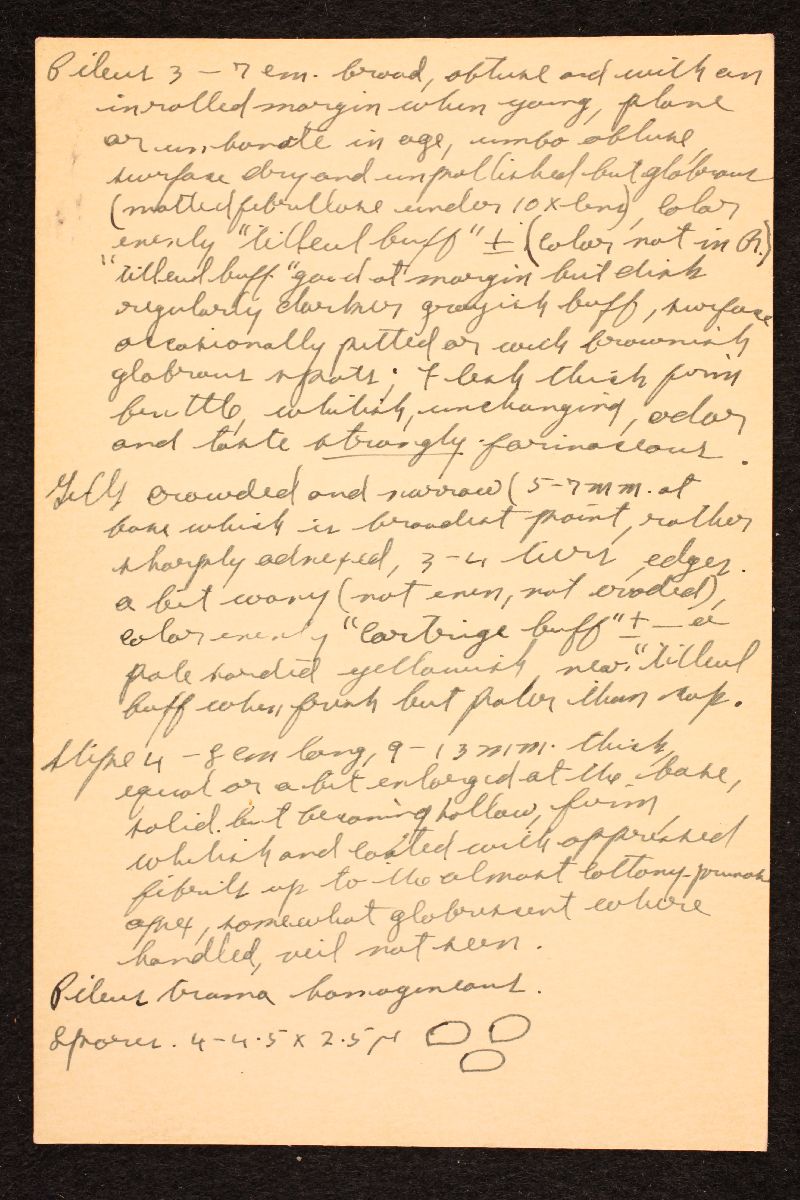 Pileus 3 – 7 cm. broad, obtuse and with an
inrolled margin when young, plane
or umbonate in age, umbo obtuse,
surface dry and unpolished but glabrous
(matted fibrillose under 10 x lens), color
evenly "tilleul buff" ± (color not in R.)
"tilleul buff" good at margin but disk
regularly darker grayish buff, surface
occasionally pitted or with brownish
glabrous spots; flesh thick firm
brittle, whitish, unchanging, odor
and taste strongly farinaceous.
Gills crowded and narrow (5-7 mm. at
base which is broadest point, rather
sharply adnexed, 3-4 tiers, edges
a bit wavy (not even, not eroded),
color evenly "cartrige buff" ± — a
pale sordid yellowish near "tilleul
buff when fresh but paler than cap.
Stipe 4 – 8 cm long, 9 – 13 mm. thick,
equal or a bit enlarged at the base,
solid but becoming hollow, firm,
whitish and coated with appressed
fibrils up to the almost cottony-pruinose
apex, somewhat glabrescent where
handled, veil not seen.
Pileus trama homogeneous.
Spores. 4-4.5 x 2.5 μ